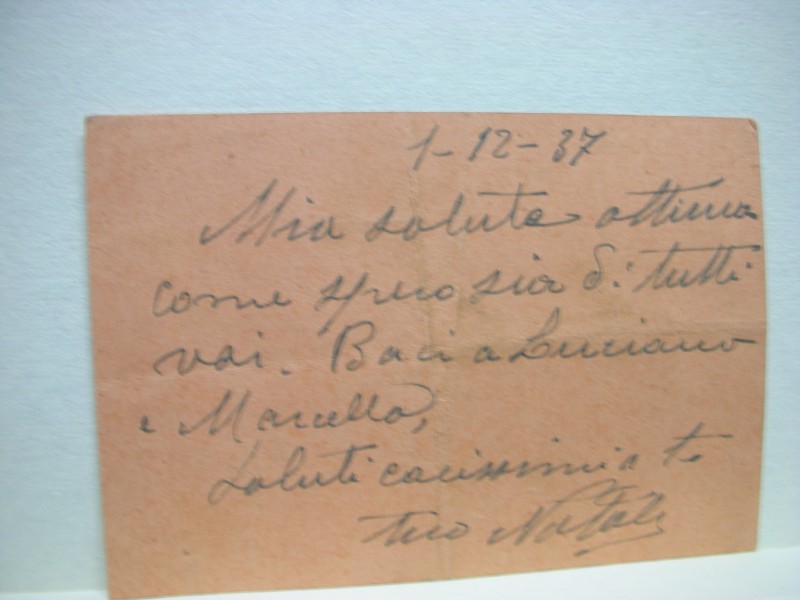 1-12-37
Mia salute ottima
come spero sia di tutti
voi. Baci a Luciano
e Marcello,
Saluti carissimi a te
tuo Natale